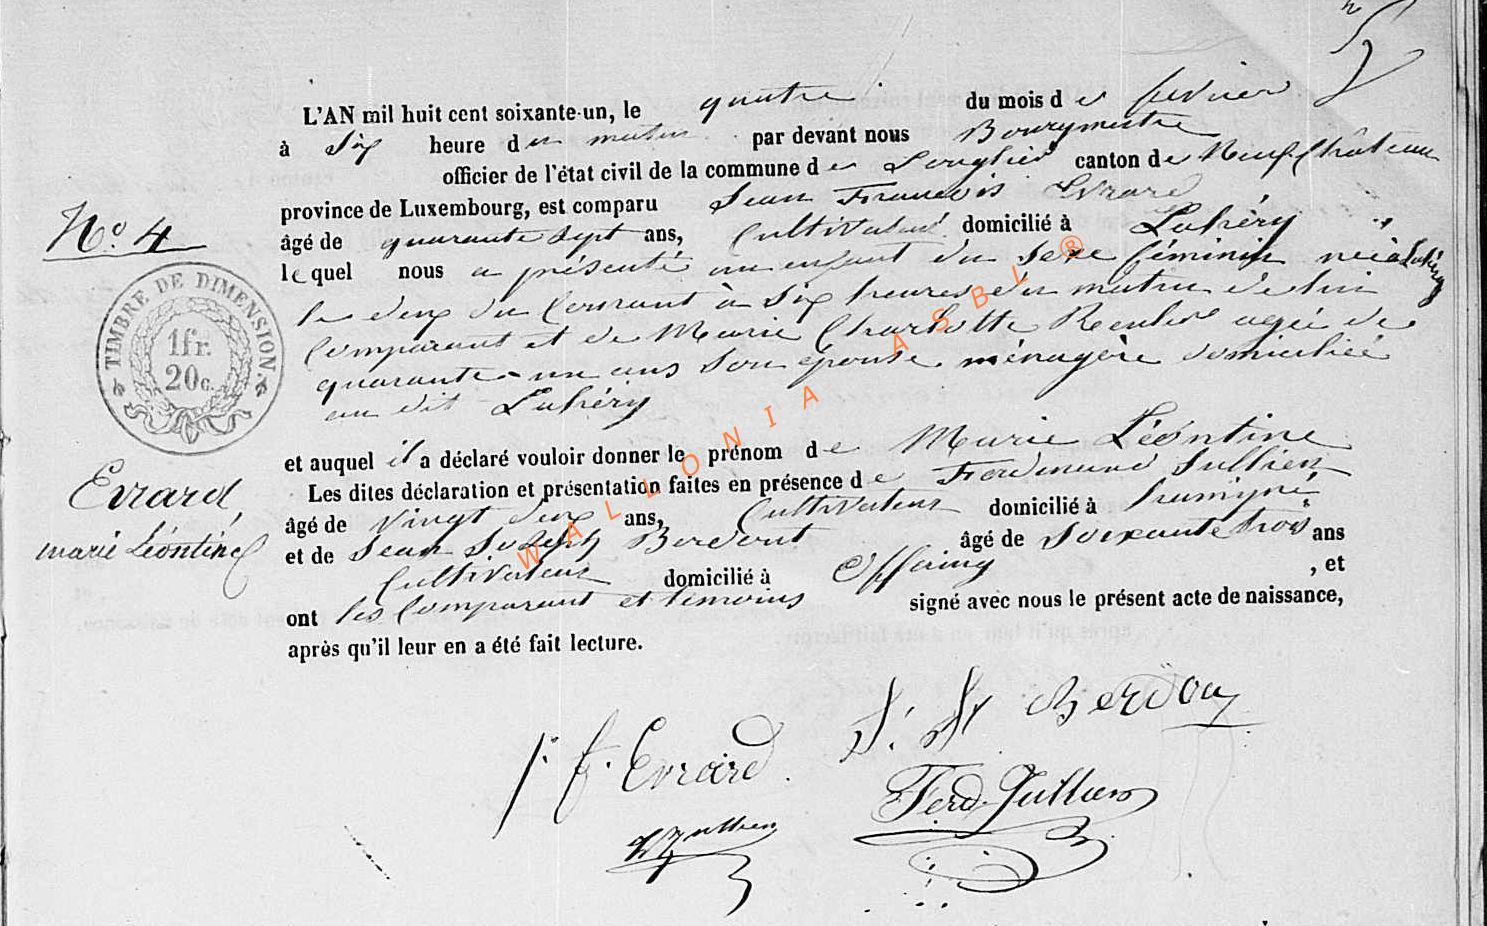 L'AN mil huit cent soixante-un, le quatre du mois de fevrier
à six heure du matin par devant nous Bourgmestre
officier de l'état civil de la commune de Longlier canton de Neufchâteau
province de Luxembourg, est comparu Jean François Evrard
N.º 4
âgé de quarante sept ans, Cultivateur domicilié à Lahéry
lequel nous a présenté un enfant du sexe féminin née à Lahéry
le deux du Courant à six heures du matin de lui
Comparant et de Marie Charlotte agée de
quarante-un ans son épouse ménagère domiciliée
au dit Lahéry
TIMBRE DE DIMENSION
1 fr.
20 c.
et auquel il a déclaré vouloir donner le prénom de Marie Léontine
Les dites déclaration et présentation faites en présence de Ferdinand Jullien
Evrard,
marie Léontine
âgé de vingt deux ans, Cultivateur domicilié à
et de Jean Joseph âgé de soixante trois ans
Cultivateur domicilié à Offaing , et
ont les Comparant et temoins signé avec nous le présent acte de naissance,
après qu'il leur en a été fait lecture.
J. J. Berdou
j. f. Evrard
Ferd. Jullien
Jullien
WALLONIA ASBL ®